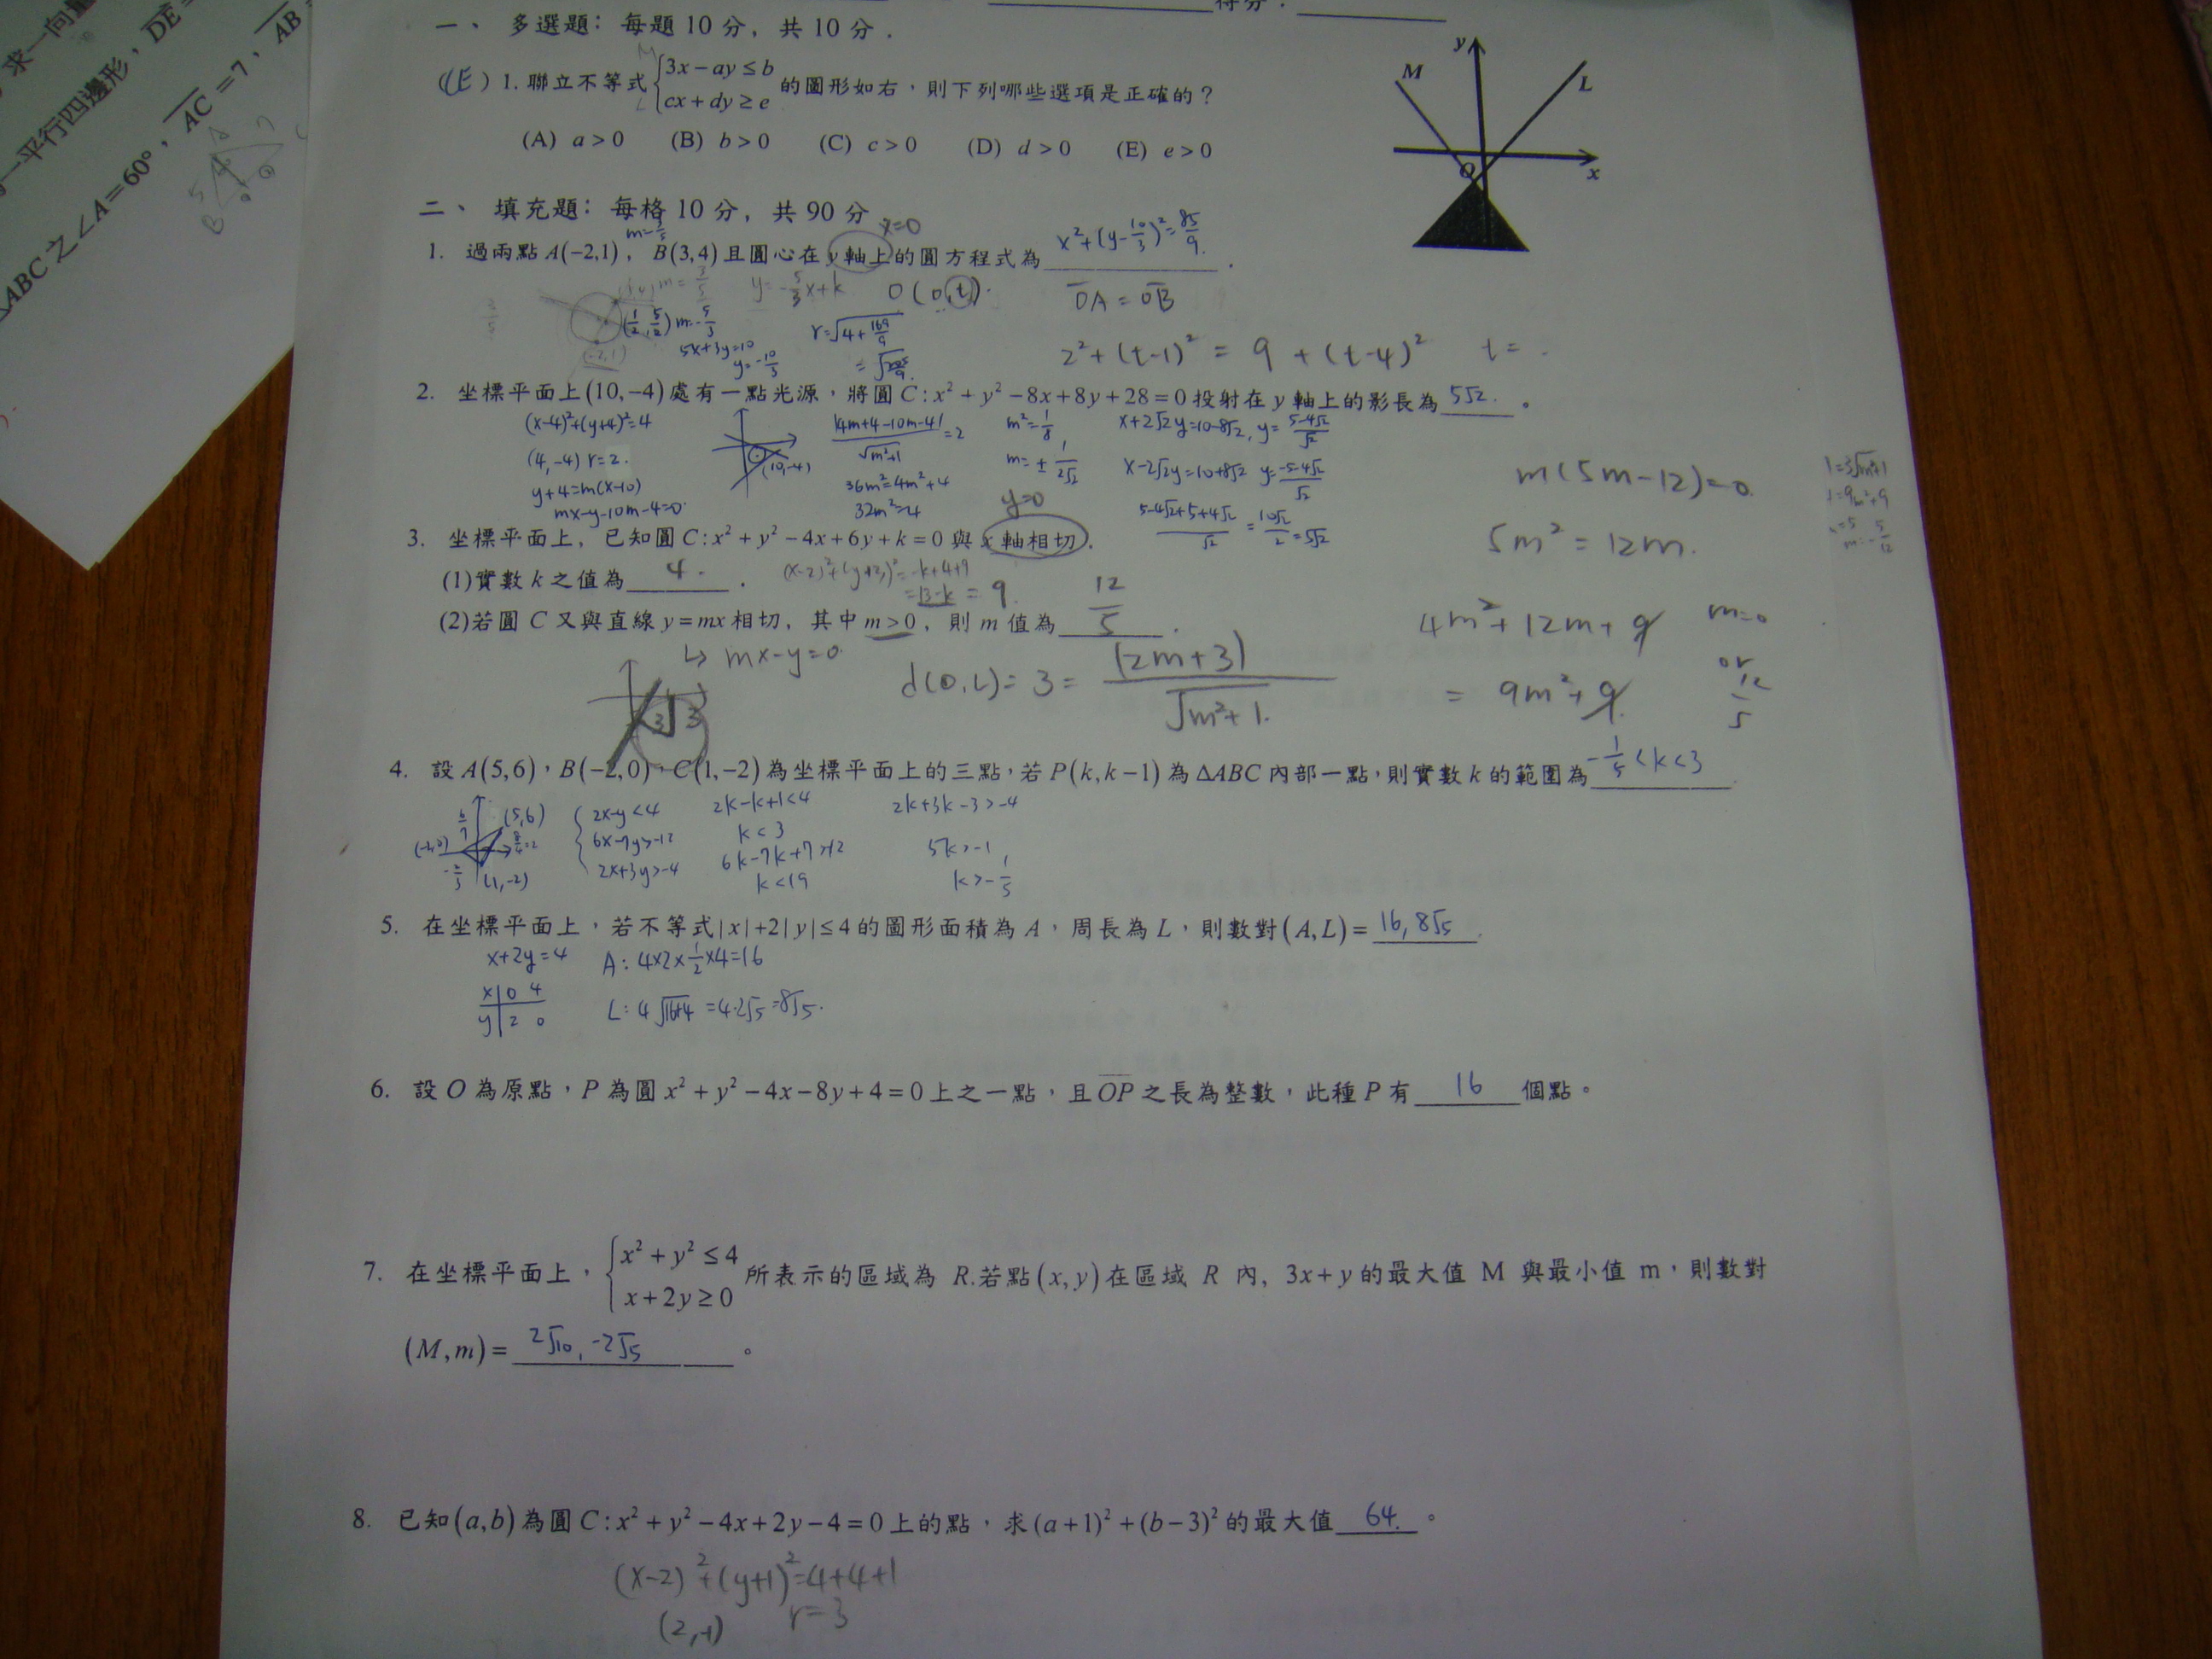 得分：
一、 多選題：每題 10 分，共 10 分．
(CE) 1. 聯立不等式 {3x − ay ≤ b, cx + dy ≥ e 的圖形如右，則下列哪些選項是正確的？
(A) a > 0 (B) b > 0 (C) c > 0 (D) d > 0 (E) e > 0
M y L O x
二、 填充題：每格 10 分，共 90 分
x=0
1. 過兩點 A(−2,1)，B(3,4) 且圓心在 y 軸上的圓方程式為 x²+(y−10/3)²=85/9 .
y=−5/3x+k O(0,t) OA = OB
(1/2, 5/2) m=−5/3
5x+3y=10
2²+(t−1)² = 9+(t−4)² t=
2. 坐標平面上 (10,−4) 處有一點光源，將圓 C : x² + y² − 8x + 8y + 28 = 0 投射在 y 軸上的影長為 5√2 。
(x−4)²+(y+4)²=4
(4,−4) r=2.
y+4=m(x−10)
mx−y−10m−4=0
(10,−4)
|4m+4−10m−4|/√m²+1 =2
36m²=4m²+4
32m²=4
m²=1/8
m=±1/2√2
x+2√2y=10−8√2, y=5−4√2/√2
x−2√2y=10+8√2 y=−5−4√2/√2
5−4√2+5+4√2/√2 = 10√2/2 =5√2
m(5m−12)=0
5m²=12m.
y=0
3. 坐標平面上，已知圓 C : x² + y² − 4x + 6y + k = 0 與 x 軸相切．
(1)實數 k 之值為 4 .
(x−2)²+(y+3)²=−k+4+9
=13−k = 9
(2)若圓 C 又與直線 y = mx 相切，其中 m > 0，則 m 值為 12/5 .
↳ mx−y=0
d(O,L)= 3 = (2m+3)/√m²+1.
4m²+12m+9
= 9m²+9
m=0
or
12/5
4. 設 A(5,6)，B(−2,0)，C(1,−2) 為坐標平面上的三點，若 P(k,k−1) 為 ΔABC 內部一點，則實數 k 的範圍為 −1/5<k<3
(5,6)
(−2,0)
(1,−2)
{2x−y<4
6x−7y>−12
2x+3y>−4
2k−k+1<4
k<3
6k−7k+7>−12
k<19
2k+3k−3>−4
5k>−1
k>−1/5
5. 在坐標平面上，若不等式 |x| + 2|y| ≤ 4 的圖形面積為 A，周長為 L，則數對 (A,L) = 16, 8√5 .
x+2y=4 A: 4×2×1/2×4=16
x|0 4
y|2 0
L: 4√16+4 =4·2√5=8√5.
6. 設 O 為原點，P 為圓 x² + y² − 4x − 8y + 4 = 0 上之一點，且 OP 之長為整數，此種 P 有 16 個點。
7. 在坐標平面上，{x² + y² ≤ 4, x + 2y ≥ 0 所表示的區域為 R.若點 (x,y) 在區域 R 內，3x + y 的最大值 M 與最小值 m，則數對
(M,m) = 2√10, −2√5 。
8. 已知 (a,b) 為圓 C : x² + y² − 4x + 2y − 4 = 0 上的點，求 (a+1)² + (b−3)² 的最大值 64. 。
(x−2)²+(y+1)²=4+4+1
(2,−1) r=3
求一向量
一平行四邊形，DE=
ABC 之 ∠A = 60°，AC = 7，AB